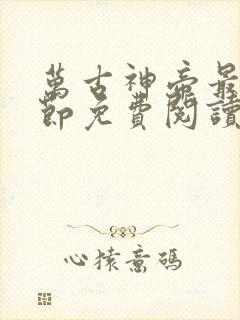 萬古神帝最
節免費閱讀
心猿意碼